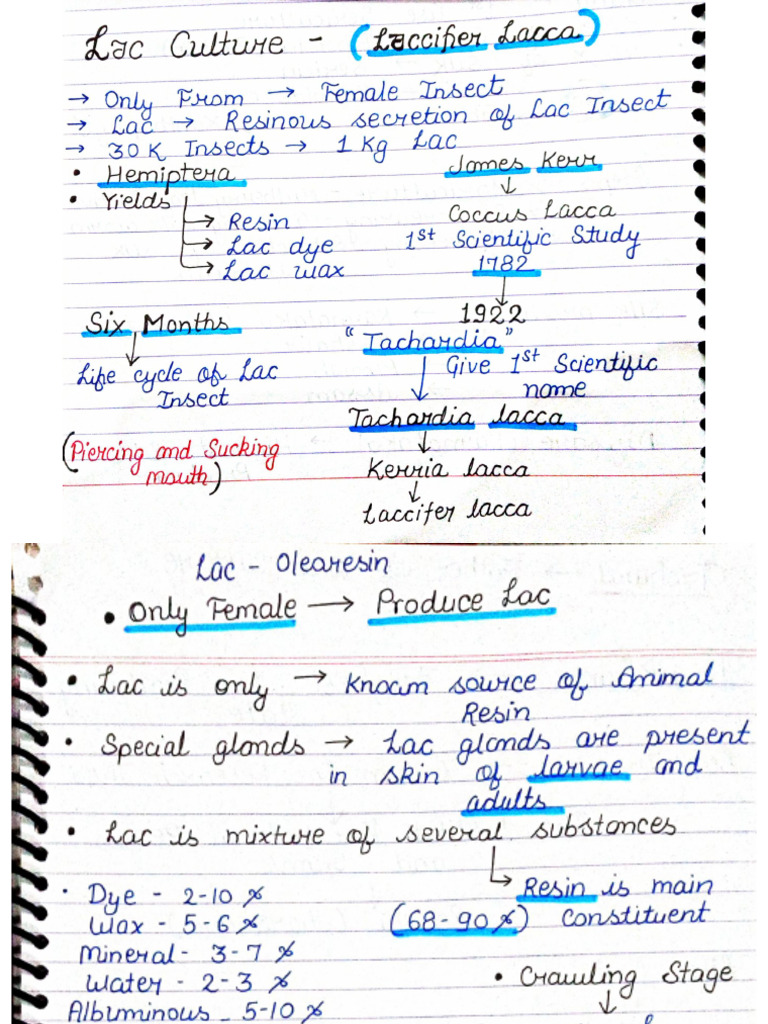 Lac Culture - (Laccifer Lacca)
→ Only From → Female Insect
→ Lac → Resinous secretion of Lac Insect
→ 30K Insects → 1 Kg Lac
• Hemiptera
• Yields
→ Resin
→ Lac dye
→ Lac wax
James Kerr
↓
Coccus Lacca
1st Scientific Study
1782
↓
1922
"Tachardia"
↓ Give 1st Scientific
name
Tachardia lacca
↓
Kerria lacca
↓
Laccifer lacca
Six Months
↓
Life cycle of Lac
Insect
(Piercing and Sucking
mouth)
Lac - Olearesin
• Only Female → Produce Lac
• Lac is only → Known source of Animal
Resin
• Special glands → Lac glands are present
in skin of larvae and
adults
• Lac is mixture of several substances
↳ Resin is main
(68-90%) constituent
• Dye - 2-10 %
Wax - 5-6 %
Mineral - 3-7 %
Water - 2-3 %
Albuminous - 5-10 %
• Crawling Stage
↓